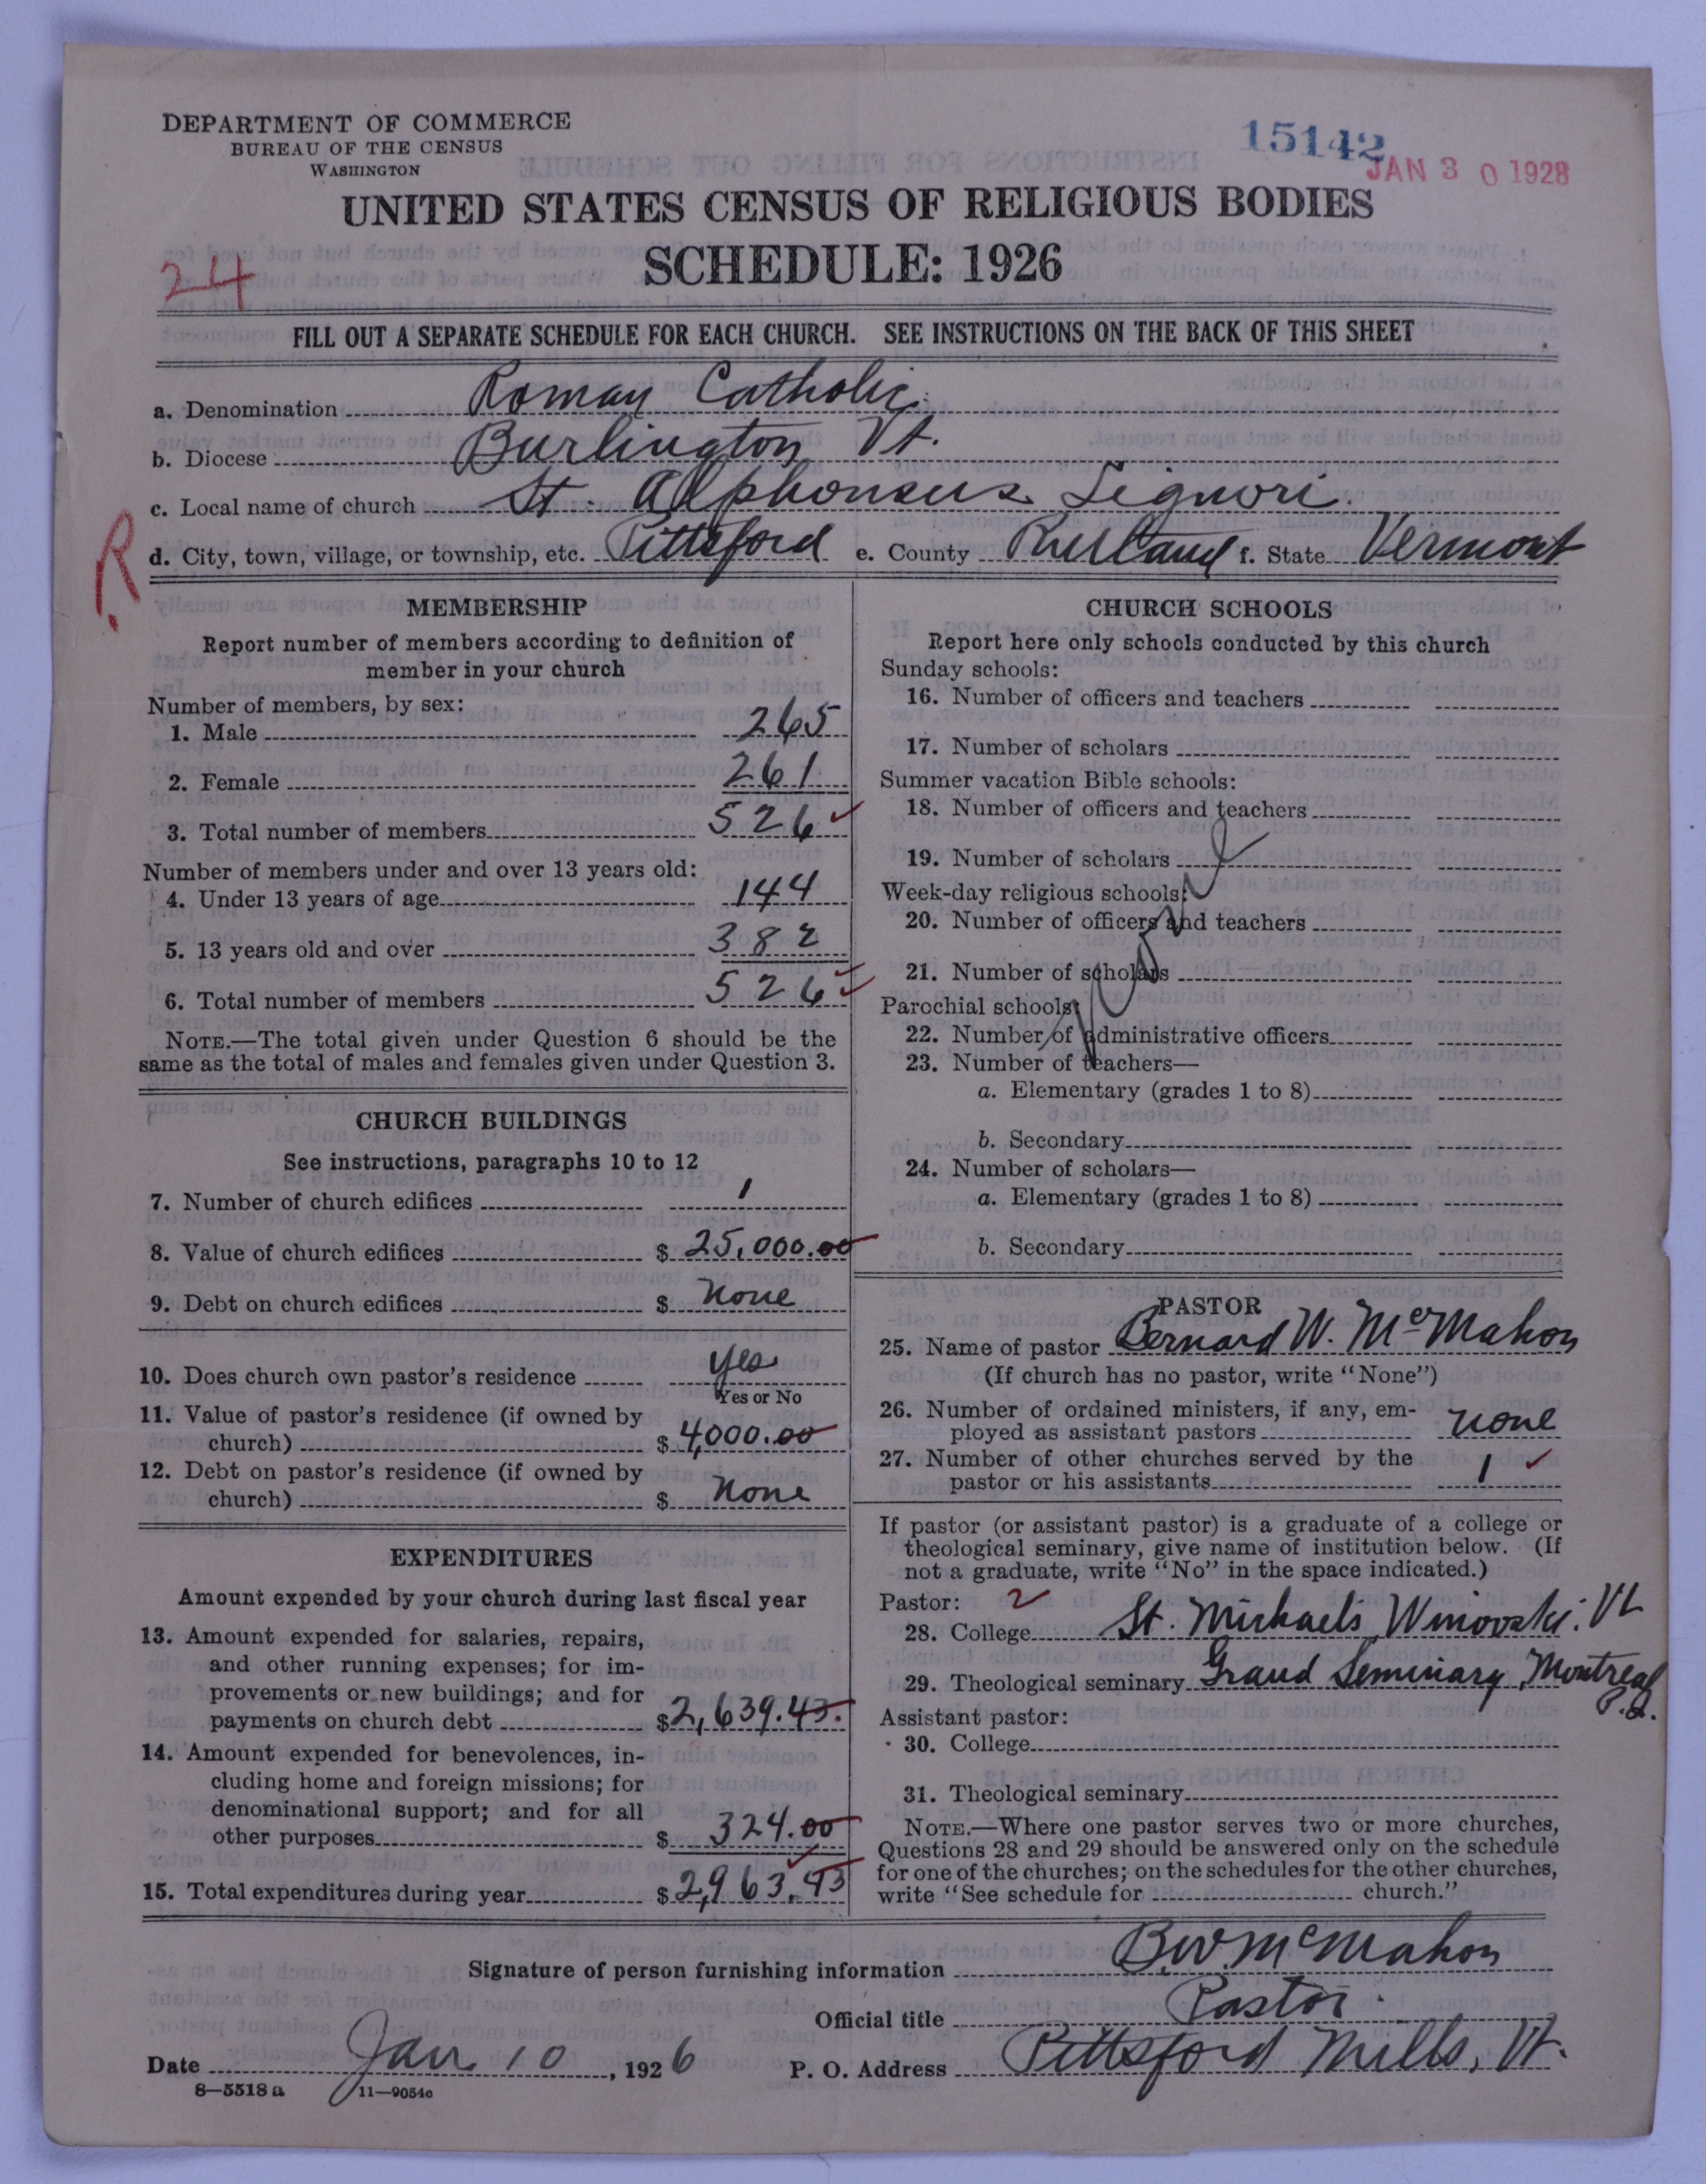 DEPARTMENT OF COMMERCE
BUREAU OF THE CENSUS
WASHINGTON
15142
JAN 30 1928
UNITED STATES CENSUS OF RELIGIOUS BODIES
SCHEDULE: 1926
24
FILL OUT A SEPARATE SCHEDULE FOR EACH CHURCH. SEE INSTRUCTIONS ON THE BACK OF THIS SHEET
a. Denomination Roman Catholic
b. Diocese Burlington Vt.
c. Local name of church St. Alphonsus Liguori.
R
d. City, town, village, or township, etc. Pittsford e. County Rutland f. State Vermont
MEMBERSHIP
Report number of members according to definition of
member in your church
Number of members, by sex:
1. Male 265
2. Female 261
3. Total number of members 526
Number of members under and over 13 years old:
4. Under 13 years of age 144
5. 13 years old and over 382
6. Total number of members 526
NOTE.—The total given under Question 6 should be the
same as the total of males and females given under Question 3.
CHURCH BUILDINGS
See instructions, paragraphs 10 to 12
7. Number of church edifices 1
8. Value of church edifices $ 25,000.00
9. Debt on church edifices $ None
10. Does church own pastor's residence yes
Yes or No
11. Value of pastor's residence (if owned by
church) $ 4,000.00
12. Debt on pastor's residence (if owned by
church) $ None
EXPENDITURES
Amount expended by your church during last fiscal year
13. Amount expended for salaries, repairs,
and other running expenses; for im-
provements or new buildings; and for
payments on church debt $ 2,639.43.
14. Amount expended for benevolences, in-
cluding home and foreign missions; for
denominational support; and for all
other purposes $ 324.00
15. Total expenditures during year $ 2,963.43
CHURCH SCHOOLS
Report here only schools conducted by this church
Sunday schools:
16. Number of officers and teachers
17. Number of scholars
Summer vacation Bible schools:
18. Number of officers and teachers
19. Number of scholars
Week-day religious schools:
20. Number of officers and teachers
21. Number of scholars
Parochial schools:
22. Number of administrative officers
23. Number of teachers—
a. Elementary (grades 1 to 8)
b. Secondary
24. Number of scholars—
a. Elementary (grades 1 to 8)
b. Secondary
PASTOR
25. Name of pastor Bernard W. McMahon
(If church has no pastor, write "None")
26. Number of ordained ministers, if any, em-
ployed as assistant pastors none
27. Number of other churches served by the
pastor or his assistants 1
If pastor (or assistant pastor) is a graduate of a college or
theological seminary, give name of institution below. (If
not a graduate, write "No" in the space indicated.)
Pastor: 2
28. College St. Michaels Winooski. Vt
29. Theological seminary Grand Seminary Montreal
P.Q.
Assistant pastor:
30. College
31. Theological seminary
NOTE.—Where one pastor serves two or more churches,
Questions 28 and 29 should be answered only on the schedule
for one of the churches; on the schedules for the other churches,
write "See schedule for church."
Signature of person furnishing information B.W. McMahon
Official title Pastor.
Date Jan 10, 1926 P. O. Address Pittsford Mills, Vt.
8—5518 a 11—9054c